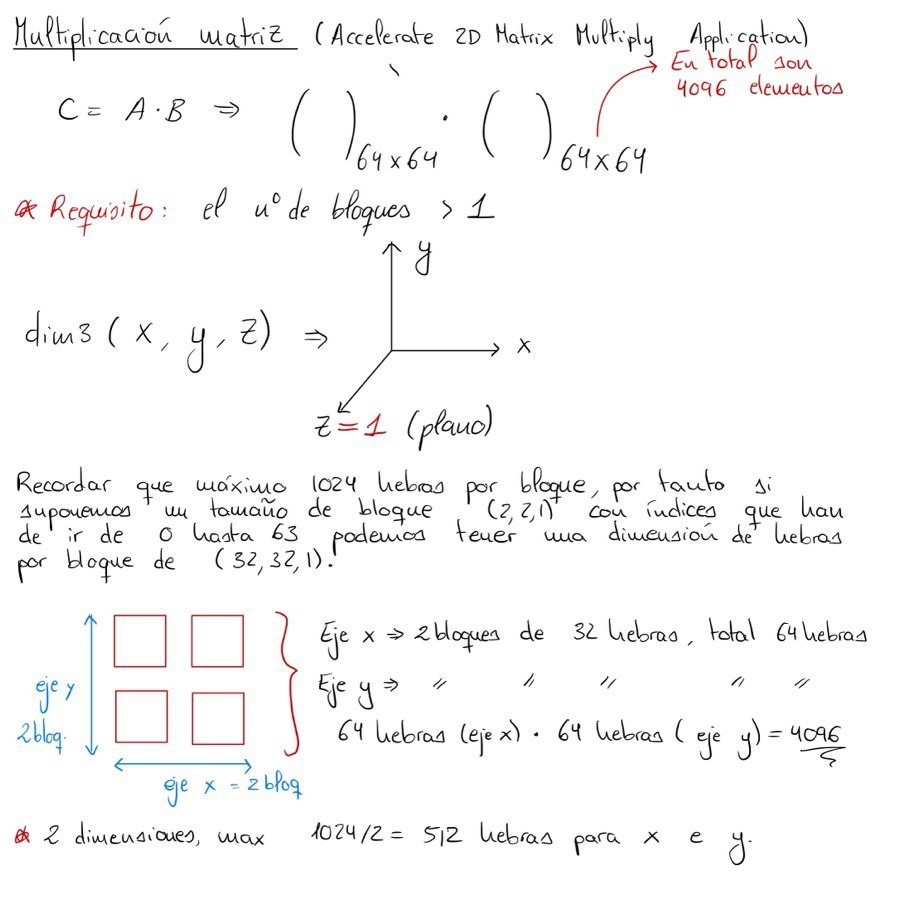 Multiplicación matriz (Accelerate 2D Matrix Multiply Application)
En total son
4096 elementos
C = A · B ⇒ ( )64x64 · ( )64x64
* Requisito: el nº de bloques > 1
y
dim3 ( x, y, z) ⇒
x
z = 1 (plano)
Recordar que máximo 1024 hebras por bloque, por tanto si
suponemos un tamaño de bloque (2,2,1) con índices que han
de ir de 0 hasta 63 podemos tener una dimensión de hebras
por bloque de (32,32,1).
Eje x ⇒ 2 bloques de 32 hebras, total 64 hebras
eje y
Eje y ⇒ " " " " "
2 bloq.
64 hebras (eje x) · 64 hebras ( eje y) = 4096
eje x = 2 bloq
* 2 dimensiones, max 1024/2 = 512 hebras para x e y.